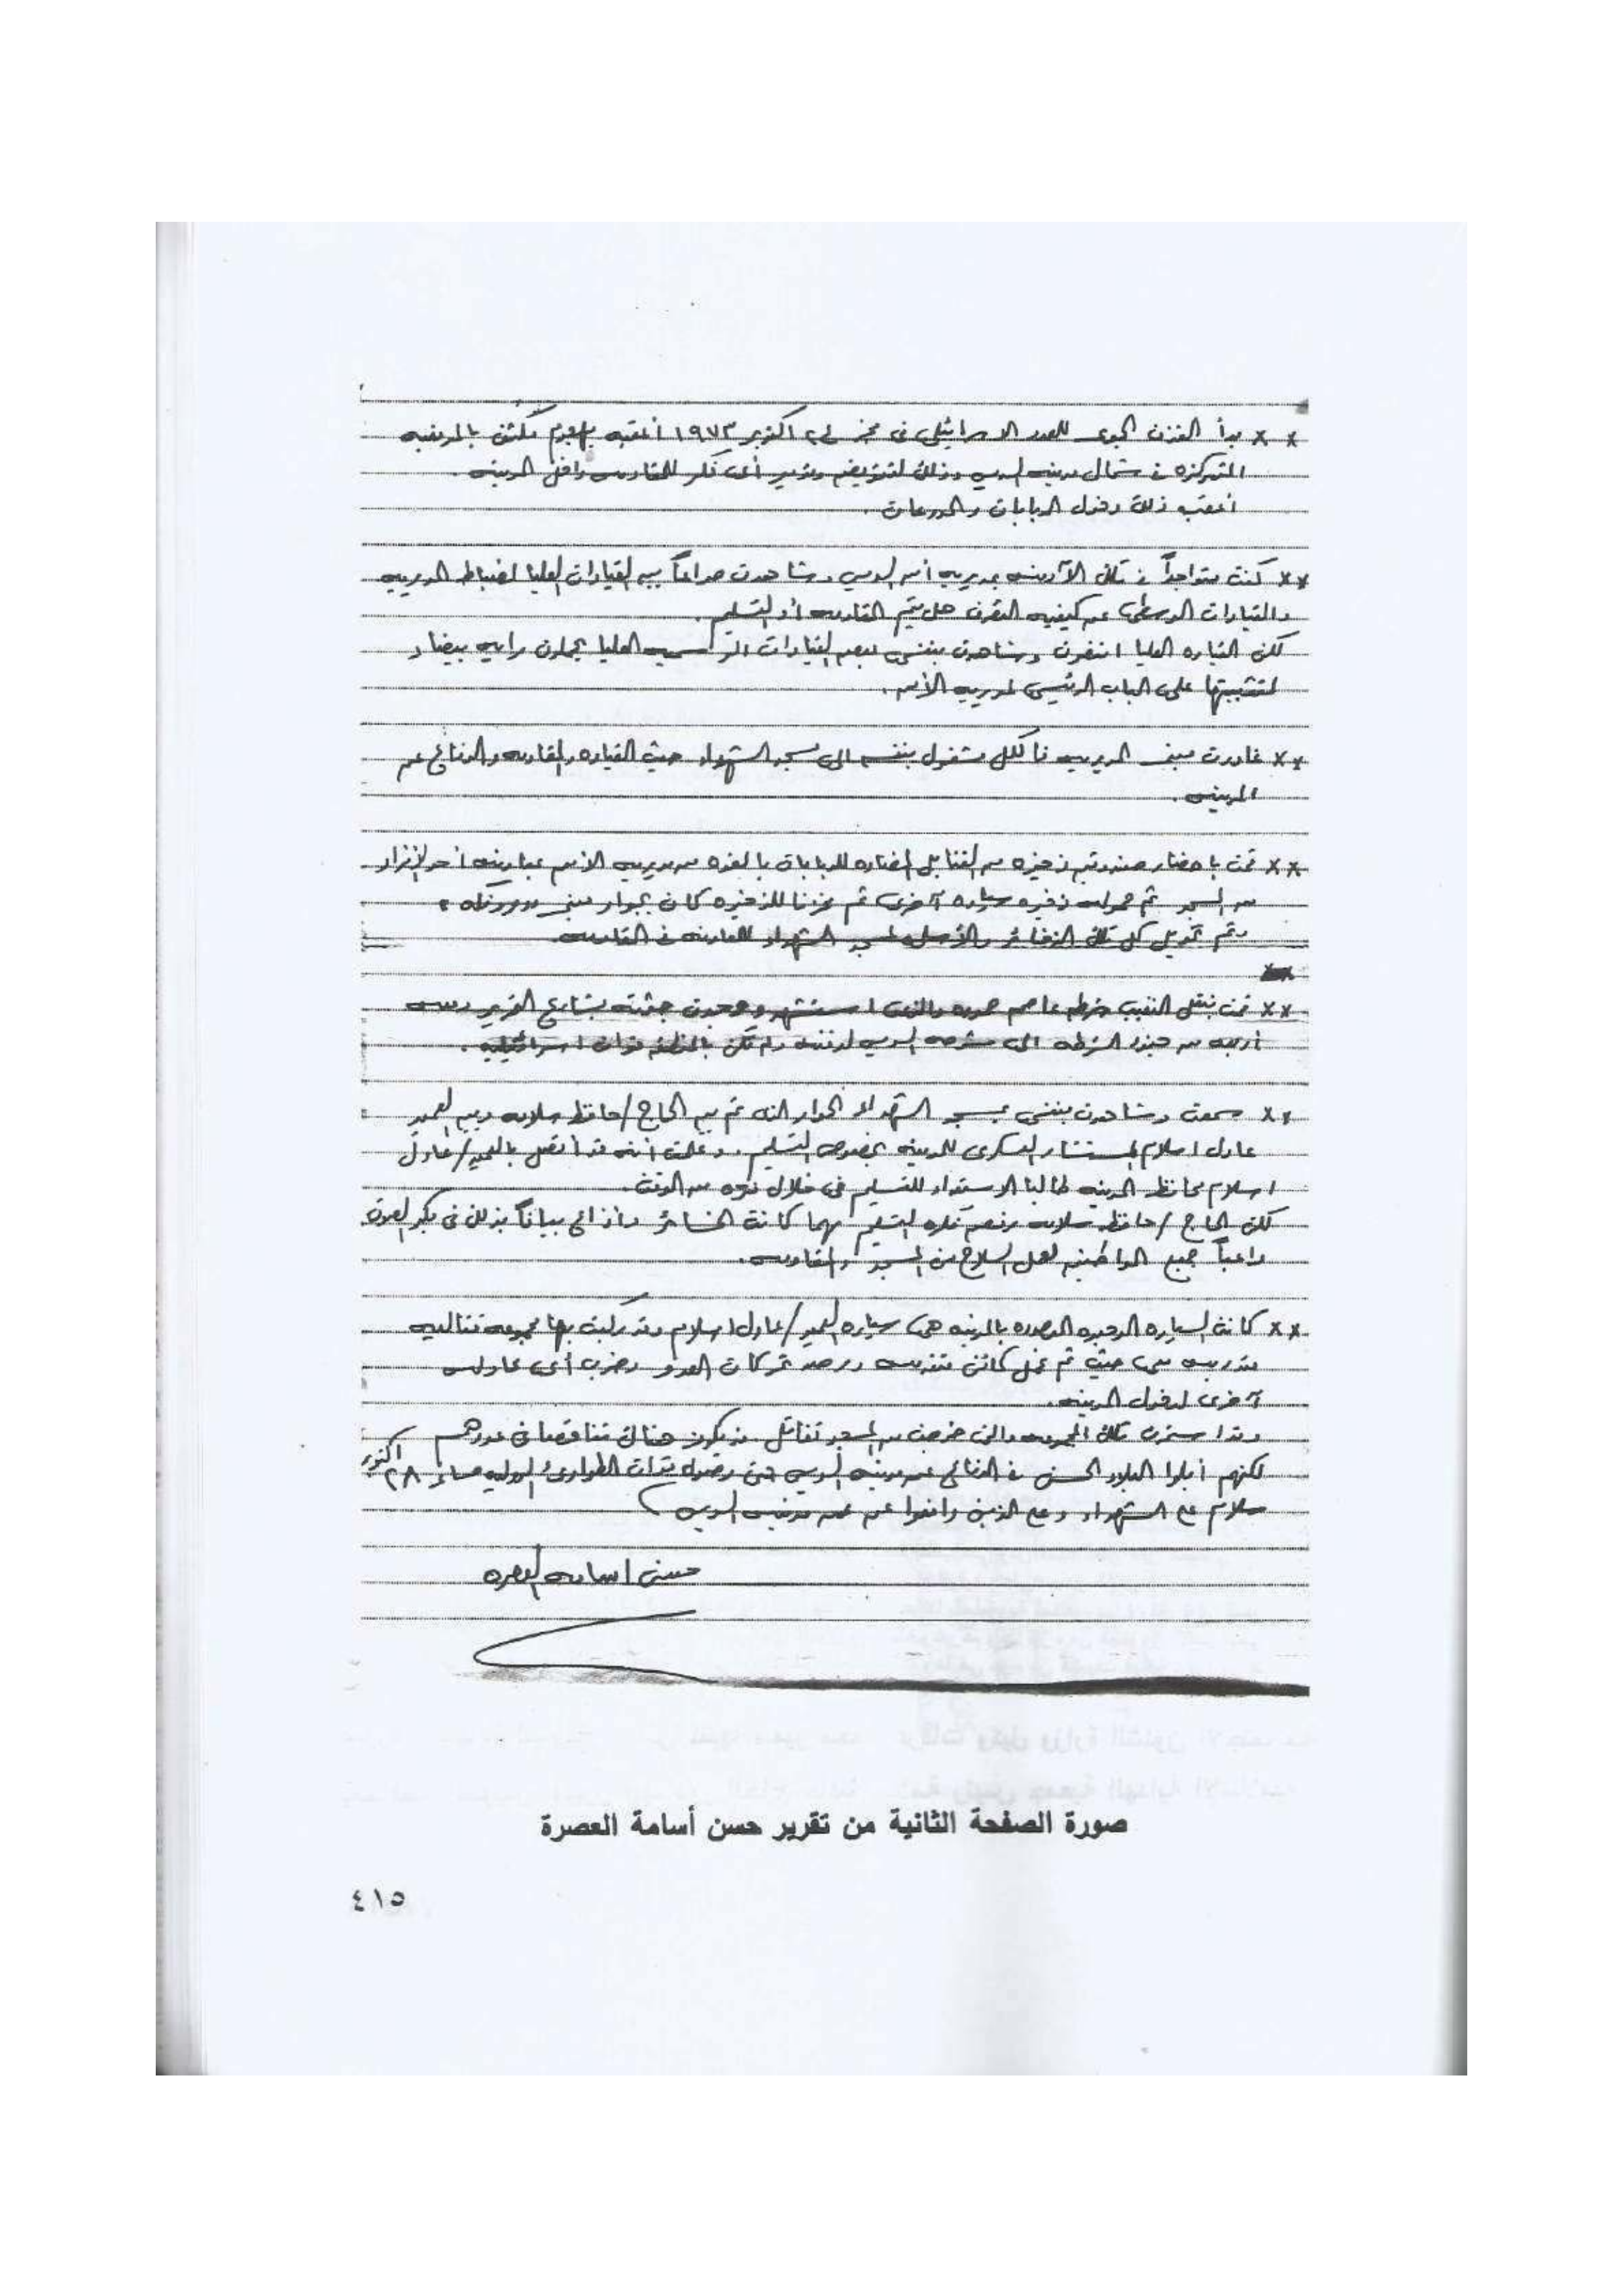 ** بدأ القذف الجوى للعدو الاسرائيلى فى فجر ٢٤ اكتوبر ١٩٧٣ أعقبه هجوم مكثف بالمدفعيه
المتمركزه فى شمال مدينه السويس وذلك لتقويض وتدمير أى فكر للمقاومه داخل المدينه .
أعقب ذلك دخول الدبابات والمدرعات .
** كنت متواجداً فى تلك الآونه بمديريه أمن السويس وشاهدت صراعاً بين القيادات العليا لضباط المديريه
والقيادات الوسطى عن كيفيه التصرف هل يتم المقاومه أو التسليم .
لكن القياده العليا انتصرت وشاهدت بنفسى بعض القيادات العليا يحملون رايه بيضاء
لتثبيتها على الباب الرئيسى لمديريه الأمن .
** غادرت مبنى المديريه فالكل مشغول بنفسه الى مسجد الشهداء حيث القياده والمقاومه والدفاع عن
المدينه .
** قمت باحضار صندوقين ذخيره من القنابل المضاده للدبابات بالقوه من مديريه الأمن بمعاونه أحد الأفراد
من المسجد ثم حموله ذخيره سياره آخرى ثم مخزنا للذخيره كان بجوار مبنى
وتم تحويل كل تلك الذخائر والأسلحه لمسجد الشهداء للمعاونه فى المقاومه
** قمت بنقل النقيب شرطه عاصم حموده والذى استشهد ووجدت جثته بشارع التحرير ومعى
أربعه من جنود الشرطه الى مشرحه السويس لدفنه ولم تكن بالمنطقه قوات اسرائيليه .
** سمعت وشاهدت بنفسى بمسجد الشهداء الحوار الذى تم بين الحاج / حافظ سلامه وبين العميد
عادل اسلام المستشار العسكرى للمدينه بخصوص التسليم . وعلمت انه قد أتصل بالعميد / عادل
اسلام محافظ المدينه طالبا الاستعداد للتسليم فى خلال فتره من الوقت .
لكن الحاج / حافظ سلامه رفض فكره التسليم مهما كانت الخسائر وأذاع بياناً بذلك فى مكبر الصوت
داعياً جميع المواطنين لحمل السلاح من المسجد والمقاومه .
** كانت السياره الوحيده الموجوده بالمدينه هى سياره العميد / عادل اسلام وقد ركبت بها مجموعه قتاليه
مدربه معى حيث تم عمل كمائن متقدمه ورصد تحركات العدو وضرب أى محاوله
آخرى لدخول المدينه .
وقد استمرت تلك المجموعه والتى خرجت من المسجد تقاتل قد يكون هناك تناقصا فى عددهم
لكنهم أبلوا البلاء الحسن فى الدفاع عن مدينه السويس حتى وصول قوات الطوارئ الدوليه مساء ٢٨ اكتوبر
سلام على الشهداء وعلى الذين دافعوا عن مدينه السويس
حسن اسامه العصره
صورة الصفحة الثانية من تقرير حسن أسامة العصرة
٤١٥